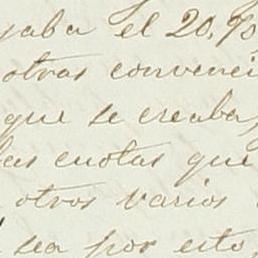 yaba el 20,
otras convenci
que se creaba,
las cuotas que
otros varios
sea por esto,